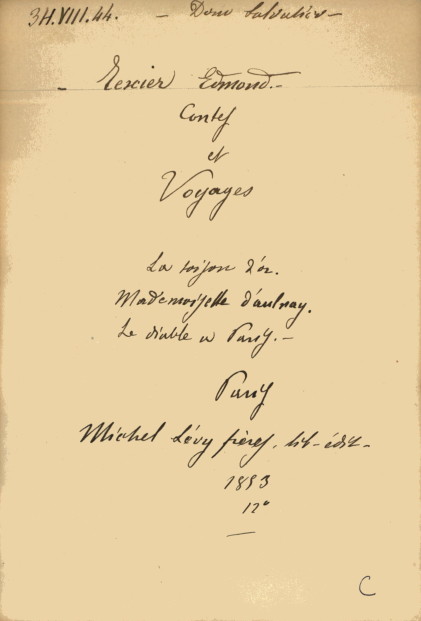 3H.VIII.44. -
- Texier Edmond. -
Contes
et
Voyages
La toison d'or.
Mademoiselle d'aulnay.
Le diable a Paris. -
Paris
Michel Lévy frères, lib-édit-
1853
12°
C